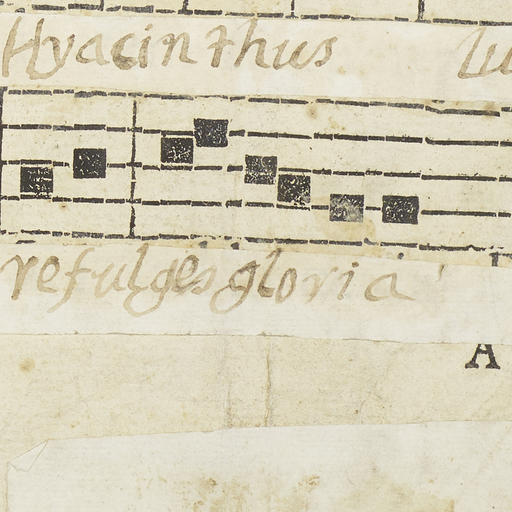 Hyacinthus Lu
refulges gloria
A